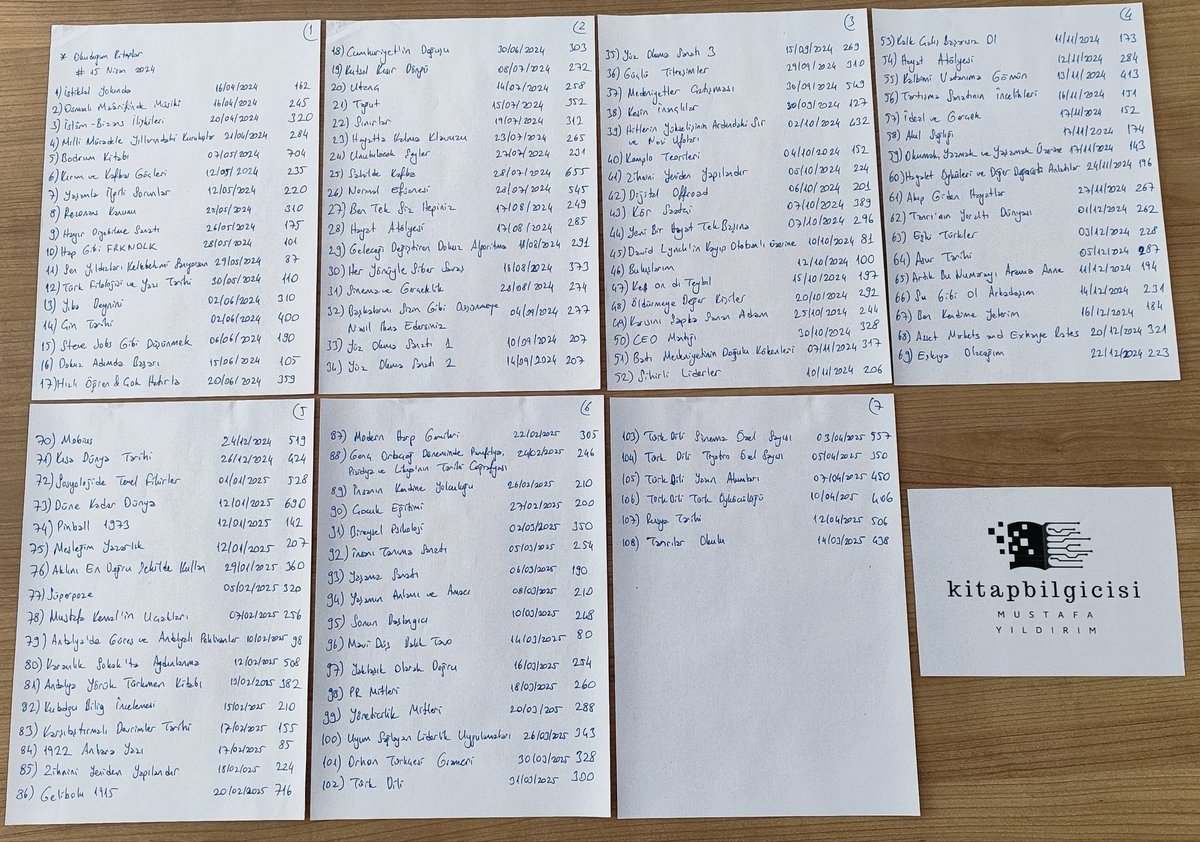 (1
* Okuduğum Kitaplar
# 15 Nisan 2024
1) İstiklal Yolunda 16/04/2024 162
2) Osmanlı Maârifinde Musiki 16/04/2024 245
3) İslâm-Bizans İlişkileri 20/04/2024 320
4) Milli Mücadele Yıllarındaki Kuruluşlar 21/04/2024 284
5) Bodrum Kitabı 07/05/2024 704
6) Kırım ve Kafkas Göçleri 12/05/2024 235
7) Yaşamla İlgili Sorunlar 12/05/2024 220
8) Rezonans Kanunu 23/05/2024 310
9) Hayır Diyebilme Sanatı 26/05/2024 175
10) Hap Gibi FRKNDLK 28/05/2024 101
11) Sen Yıldızları Kelebeğimi Sanıyorsun 29/05/2024 87
12) Türk Filolojisi ve Yazı Tarihi 30/05/2024 110
13) Yıka Beynini 02/06/2024 310
14) Çin Tarihi 02/06/2024 400
15) Steve Jobs Gibi Düşünmek 06/06/2024 190
16) Dokuz Adımda Başarı 15/06/2024 105
17) Hızlı Öğren & Çok Hatırla 20/06/2024 359
(2
18) Cumhuriyet'in Doğuşu 30/06/2024 303
19) Kutsal Kısır Döngü 08/07/2024 272
20) Utanç 14/07/2024 258
21) Tabut 15/07/2024 352
22) Sınırlar 19/07/2024 312
23) Hayatta Kalma Klavuzu 23/07/2024 265
24) Unutulacak Şeyler 27/07/2024 231
25) Sahilde Kafka 28/07/2024 655
26) Normal Efsanesi 28/07/2024 545
27) Ben Tek Siz Hepiniz 17/08/2024 249
28) Hayat Atölyesi 17/08/2024 285
29) Geleceği Değiştiren Dokuz Algoritma 18/08/2024 291
30) Her Yönüyle Siber Savaş 18/08/2024 373
31) Sinema ve Gerçeklik 28/08/2024 274
32) Başkalarını Sizin Gibi Düşünmeye
Nasıl İkna Edersiniz 04/09/2024 277
33) Yüz Okuma Sanatı 1 10/09/2024 207
34) Yüz Okuma Sanatı 2 14/09/2024 207
(3
35) Yüz Okuma Sanatı 3 15/09/2024 269
36) Güçlü Titreşimler 29/09/2024 310
37) Medeniyetler Çatışması 30/09/2024 549
38) Kesin İnançlılar 30/09/2024 127
39) Hitlerin Yükselişinin Ardındaki Sır
ve Nazi Ufoları 02/10/2024 432
40) Komplo Teorileri 04/10/2024 152
41) Zihnini Yeniden Yapılandır 05/10/2024 224
42) Dijital Offroad 06/10/2024 201
43) Kör Saatçi 07/10/2024 389
44) Yeni Bir Hayat Tek Başına 07/10/2024 296
45) David Lynch'in Kayıp Otobanlı üzerine 10/10/2024 81
46) Buluşların 12/10/2024 100
47) Kes on di Teybıl 15/10/2024 197
48) Öldürmeye Değer Kişiler 20/10/2024 292
49) Karısını Şapka Sanan Adam 25/10/2024 244
50) CEO Mantığı 30/10/2024 328
51) Batı Medeniyetinin Doğulu Kökenleri 07/11/2024 317
52) Sihirli Liderler 10/11/2024 206
(4
53) Kalk Çalış Başarısız Ol 11/11/2024 173
54) Hayat Atölyesi 12/11/2024 284
55) Kalbimi Vatanıma Gömün 13/11/2024 413
56) Tartışma Sanatının İncelikleri 16/11/2024 151
57) İdeal ve Gerçek 17/11/2024 152
58) Akıl Sağlığı 17/11/2024 174
59) Okumak, Yazmak ve Yaşamak Üzerine 17/11/2024 143
60) Hayalet Öyküleri ve Diğer Doğaüstü Anlatılar 24/11/2024 196
61) Akıp Giden Hayatlar 27/11/2024 267
62) Tanrı'nın Yeraltı Dünyası 01/12/2024 262
63) Eski Türkler 03/12/2024 228
64) Asur Tarihi 05/12/2024 287
65) Artık Bu Numarayı Arama Anne 11/12/2024 194
66) Su Gibi Ol Arkadaşım 14/12/2024 231
67) Ben Kendime Yeterim 16/12/2024 184
68) Asset Markets and Exchange Rates 20/12/2024 321
69) Eşkıya Olacağım 22/12/2024 223
(5
70) Mobius 24/12/2024 519
71) Kısa Dünya Tarihi 26/12/2024 424
72) Sosyolojide Temel Fikirler 01/01/2025 528
73) Düne Kadar Dünya 12/01/2025 690
74) Pinball 1973 12/01/2025 142
75) Mesleğim Yazarlık 12/01/2025 207
76) Aklını En Doğru Şekilde Kullan 29/01/2025 360
77) Süperpoze 05/02/2025 320
78) Mustafa Kemal'in Uçakları 07/02/2025 256
79) Antalya'da Güreş ve Antalyalı Pehlivanlar 10/02/2025 98
80) Karanlık Sokak'ta Aydınlanma 12/02/2025 508
81) Antalya Yörük Türkmen Kitabı 13/02/2025 382
82) Kutadgu Bilig İncelemesi 15/02/2025 210
83) Karşılaştırmalı Devrimler Tarihi 17/02/2025 155
84) 1922 Ankara Yazı 17/02/2025 85
85) Zihnini Yeniden Yapılandır 18/02/2025 224
86) Gelibolu 1915 20/02/2025 716
(6
87) Modern Harp Gemileri 22/02/2025 305
88) Genç Ortaçağ Döneminde Pamfilya,
Pisidya ve Likya'nın Tarihi Coğrafyası 24/02/2025 246
89) İnsanın Kendine Yolculuğu 26/02/2025 210
90) Çocuk Eğitimi 27/02/2025 200
91) Bireysel Psikoloji 02/03/2025 350
92) İnsanı Tanıma Sanatı 05/03/2025 254
93) Yaşama Sanatı 06/03/2025 190
94) Yaşamın Anlamı ve Amacı 08/03/2025 210
95) Sonun Başlangıcı 10/03/2025 248
96) Mavi Düş Balık Tavo 14/03/2025 80
97) Yaklaşık Olarak Doğru 16/03/2025 254
98) PR Mitleri 18/03/2025 260
99) Yöneticilik Mitleri 20/03/205 288
100) Uyum Sağlayan Liderlik Uygulamaları 26/03/2025 343
101) Orhon Türkçesi Grameri 30/03/2025 328
102) Türk Dili 31/03/2025 300
(7
103) Türk Dili Sinema Özel Sayısı 03/04/2025 557
104) Türk Dili Tiyatro Özel Sayısı 05/04/2025 350
105) Türk Dili Yazın Akımları 07/04/2025 450
106) Türk Dili Türk Öykücülüğü 10/04/205 406
107) Rusya Tarihi 12/04/2025 506
108) Tanrılar Okulu 14/03/2025 438
kitapbilgicisi
MUSTAFA
YILDIRIM